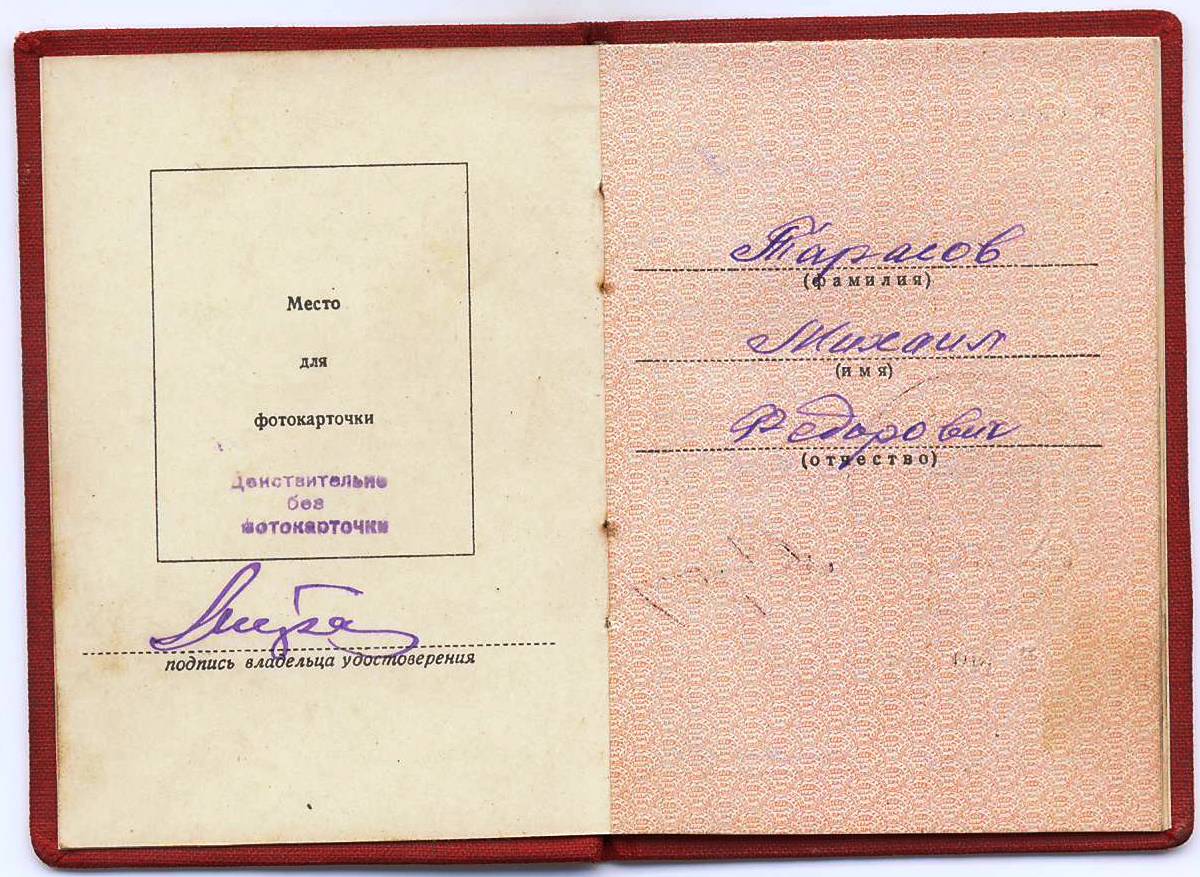 Место
для
фотокарточки
Действительно
без
фотокарточки
подпись владельца удостоверения
Тарасов
(фамилия)
Михаил
(имя)
Федорович
(отчество)